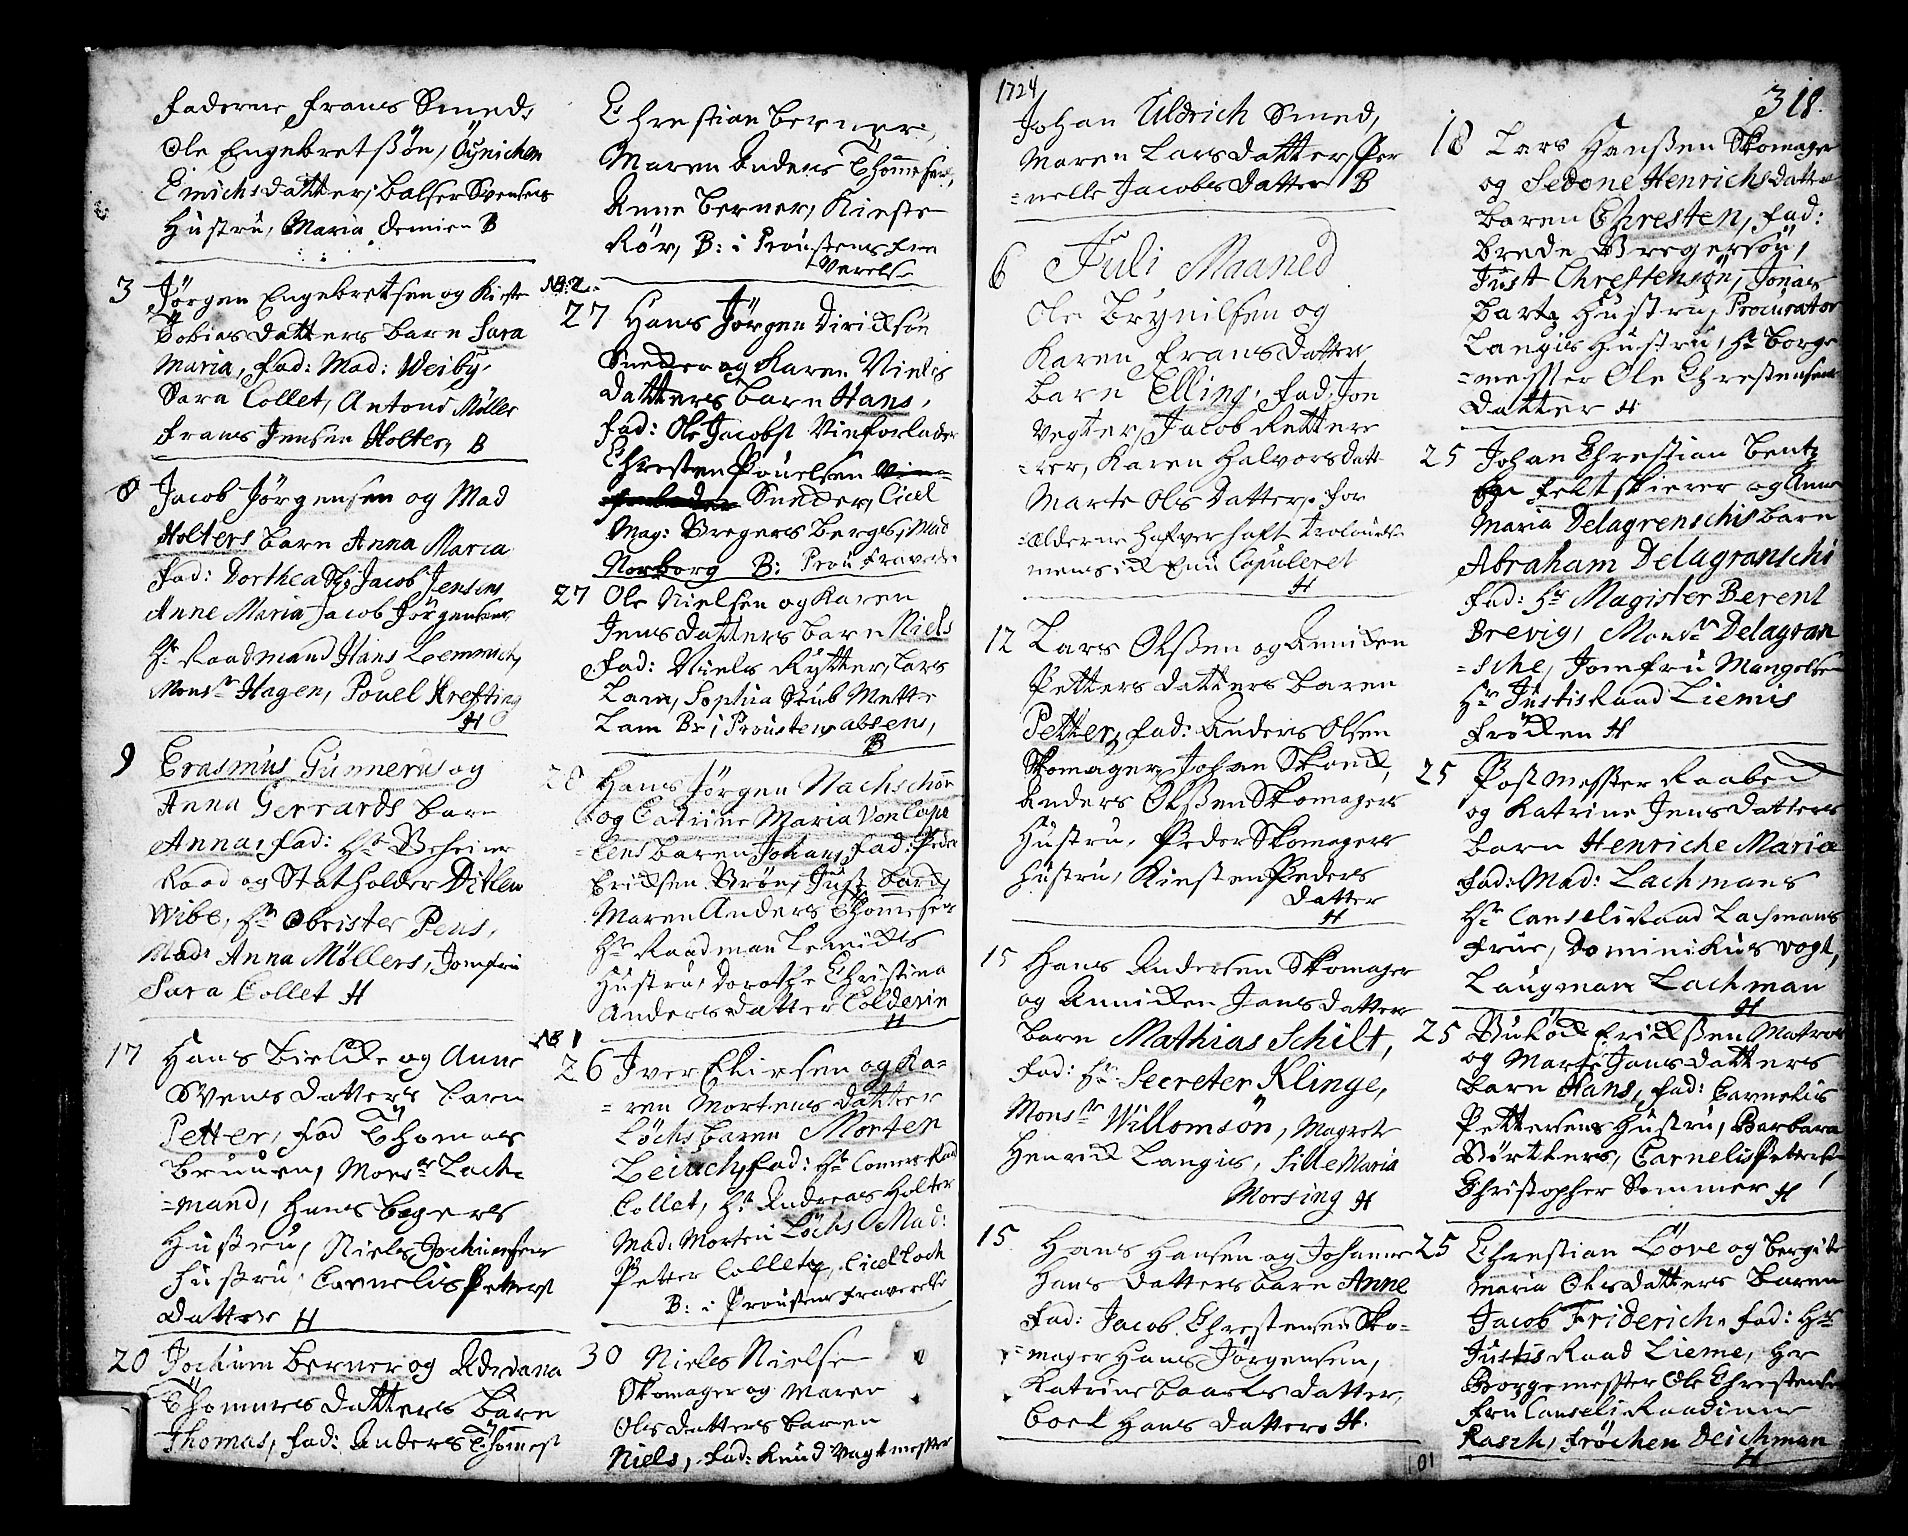 Faderne Frans Smed,
Ole Engebretsßön, Öÿnichen
Emichsdatter, Balser Svensens
Hustru, Maria B
3 Jörgen Engebretsen og Kirste
Tobias datters barn Sara
Maria, fad: Mad: Weiby,
Sara Collet, Antoni Müller
Frans Jensen Holter, B
8 Jacob Jörgensen og Mad
Holters barn Anna Maria
Fad: Dorthea Sl: Jacob Jensens
Anne Maria Jacob Jörgensens
Hr Raadmand Hans Lemmich,
Monsr Hagen, Povel Krefting
H
9 Erasmus Gunnerus og
Anna Gerrards barn
Anna, fad: Hr Geheimer
Raad og Statholder Ditlew
Wibe, Hr Obrister Pens,
Mad: Anna Møllers, Jomfru
Sara Collet H
17 Hans Bielcke og Anne
Svens datters barn
Petter, fad Thomas
Bruuen, Monsr Lach=
=mand, Hans Bagers
Hustru, Niels Jochumsens
Hustru, Cornelis Petters
datter H
20 Jochum Berner og Adriana
Thommes datters barn
Thomas, fad: Anders Thomes
Chrestian Berner,
Maren Anders Thommesens,
Anne Berner, Kirste
Rör, B: i Proustens fra
Verelse
NB: 2.
27 Hans Jörgen Diricksön
Snedker og Karen Niels
datters barn Hans,
fad: Ole Jacobs Vinforlader
Chresten Povelsen
Snedker, Cicel
Mag: Bregers Bergs, Mad
Norborg B: Prou fraverelse
27 Ole Nielsen og Karen
Jens datters barn Niels
Fad: Niels Rytter, Lars
Lam, Sophia Stub Mette
Lam B: i Proustens absens,
B
28 Hans Jörgen Nachschön
og Catrine Maria Von Cape
lens baren Johan, fad: Peder
Ericksen Brön, Just Bard,
Maren Anders Thomesen
Hr Raadman Lemicks
Hustru, Dorothe Christina
Andersdatter Colderin
H
NB 1
26 Iver Eliesen og Ka=
=ren Mortens datter
Löchs baren Morten
Leuch, fad: Hr Comers Raad
Collet, Hr Andreas Holter
Mad: Morten Löchs Mad:
Petter Collet, Cicel Loch
B: i Proustens fraverelse
30 Niels Nielse
Skomager og Maren
Ols datters baren
Niels, fad: Knud Vagtmester
1724
Johan Uldrich Smed,
Maren Lars datter, Per
=nelle Jacobs datter B
Juli Maaned
6 Ole Brynilsen og
Karen Frans datter
barn Elling, fad, Jon
Vegter, Jacob Rettere
=rer, Karen Halvorsdatt
Marte Ols datter, for
=ælderne Hafver haft Trolovelse
mens ick Enu Copuleret
H
12 Lars Olßen og Annicken
Petters datters baren
Petter, fad: Anders Olsen
Skomager, Johan Skonck,
Anders Olßen Skomagers
Hustru, Peder Skomagers
Hustru, Kiersten Peders
datter
H
15 Hans Andersen Skomager
og Annicken Jans datter
barn Mathias Schilt,
Fad: Hr Secreter Klinge,
Monsr Willomsön, Magrete
Henrick Langis, Sille Maria
Morsing H
15 Hans Hansen og Johanne
Hans datters barn Anne
Fad: Jacob Chrestensen Sko=
=mager Hans Jörgensen,
Katrine Baarls datter,
Boel Hans datters H.
318.
18 Lars Hanßen Skomager
og Sedone Henrichsdatter
baren Chresten, fad:
Brede Bregersön,
Just Chrestensön, Jonas
Barts Hustru, Procurator
Langis Hustru, Hr Borge
=mester Ole Chrestensens
datter H
25 Johan Chrestian Bentz
Feltskierer og Anne
Maria Delagrenschis barn
Abraham Delagranschi
Fad: Hr Magister Berent
Brevig, Monsr Delagran
=sche, Jomfru Mangelsen
Hr Justis Raad Liemis
Frøcken H
25 Postmester Raabe
og Katrine Jens datters
barn Henriche Maria
fad: Mad: Lachmans
Hr Canseli Raad Lachmans
Frue, Dominikus Vogt,
Laugman Lachman
H
25 Ericksßen Matros
og Marte Jans datters
barn Hans, fad: Cornelis
Pettersens Hustru, Barbara
Börtkers, Carnelis Petersen
Christopher Sommer H
25 Chrestian Löve og Bergite
Maria Ols datters baren
Jacob Friderich, fad: Hr
Justis Raad Lieme, Her
Borgemester Ole Chrestensen
fru Canseli Raadinne
Rasch, Fröchen Deichman
H
101